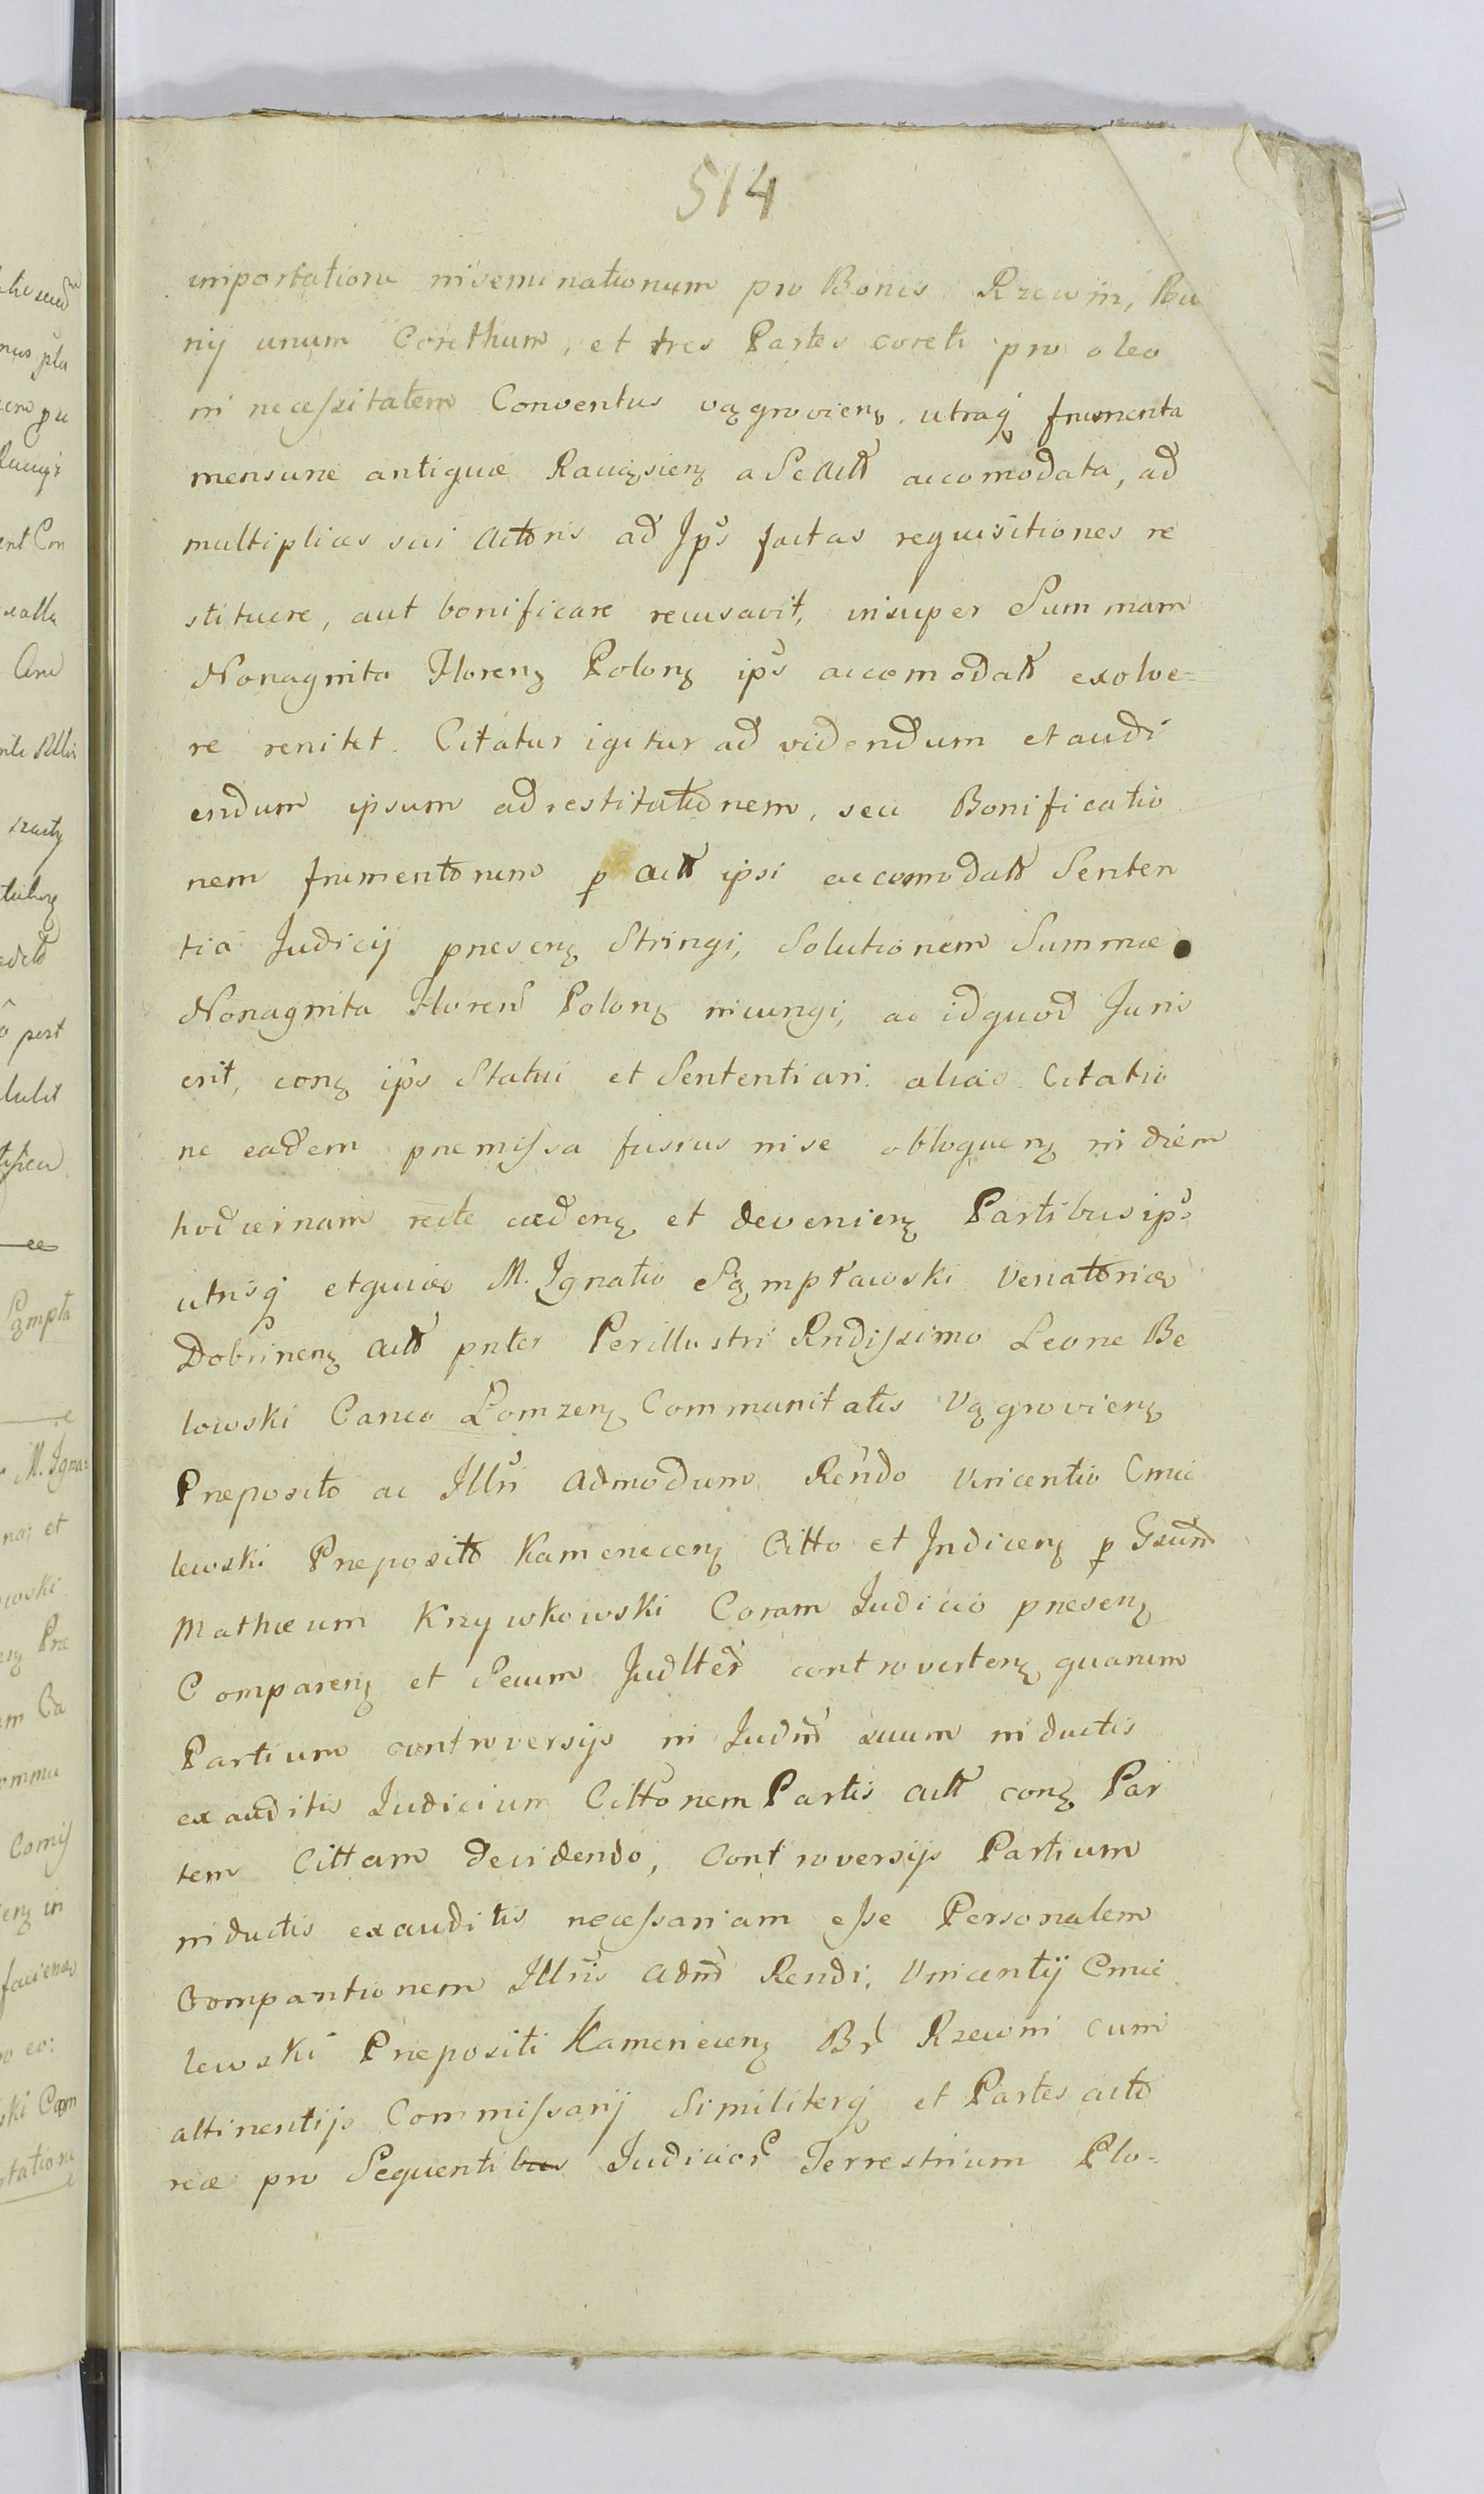 514
importatione inseminationum pro Bonis Rzewin, Ra
nij unum Corethum, et tres Partes coreti pro oleo
in necessitatem Conventus vągrovienȝ. utraqꝫ frumenta
mensuræ antiquæ Raciążienȝ a Se Actt accomodata, ad
multiplices sui Actoris ad Ips factas requisitiones re
stituere, aut bonificare recusavit, insuper Summam
Nonaginta Florenȝ Polonȝ ips accomodatt exolve=
re renitet. Citatur igitur ad videndum et audi
endum ipsum ad restitutionem, seu Bonificatio
nem frumentorum p Actt ipsi accomodatt Senten
tia Judicij præsenȝ Stringi, Solutionem Summæ
Nonaginta Floren Polonȝ incungi, ac id quod Juris
erit, conȝ ips Statui et Sententiari. alias Citatio
ne eadem præmissa fusius in se obloquenȝ in diem
hodiernam recte cædenȝ et devenienȝ Partibus ips
utrisqꝫ et quidem M. Ignatio Sąmpławski Venatoride
Dobrinenȝ Actt pntes Perillustri Rndissimo Leone Be
lowski Canco Łomzenȝ Communitatis Vągrovienȝ
Præposito ac Illri Admodum Rendo Vincentio Cmie
lewski Præposito Kamenecenȝ Citto et Indicenȝ p Gsum
Mathæum Krzywkowski Coram Judicio præsenȝ
Comparenȝ et Secum Judlter controvertenȝ quarum
Partium controversijs in Judm suum inductis
exauditis Judicium Cittonem Partis Actt conȝ Par
tem Cittam decidendo, Controversijs Partium
inductis exauditis necessariam esse Personalem
Comparitionem Illris Adm Rendi, Vincentij Cmie
lewski Præpositi Kamenecenȝ Br Rzewin cum
attinentijs Commissarij Similiterqꝫ et Partes acto
reæ pro Sequentibus Judicior Terrestrium Plo=